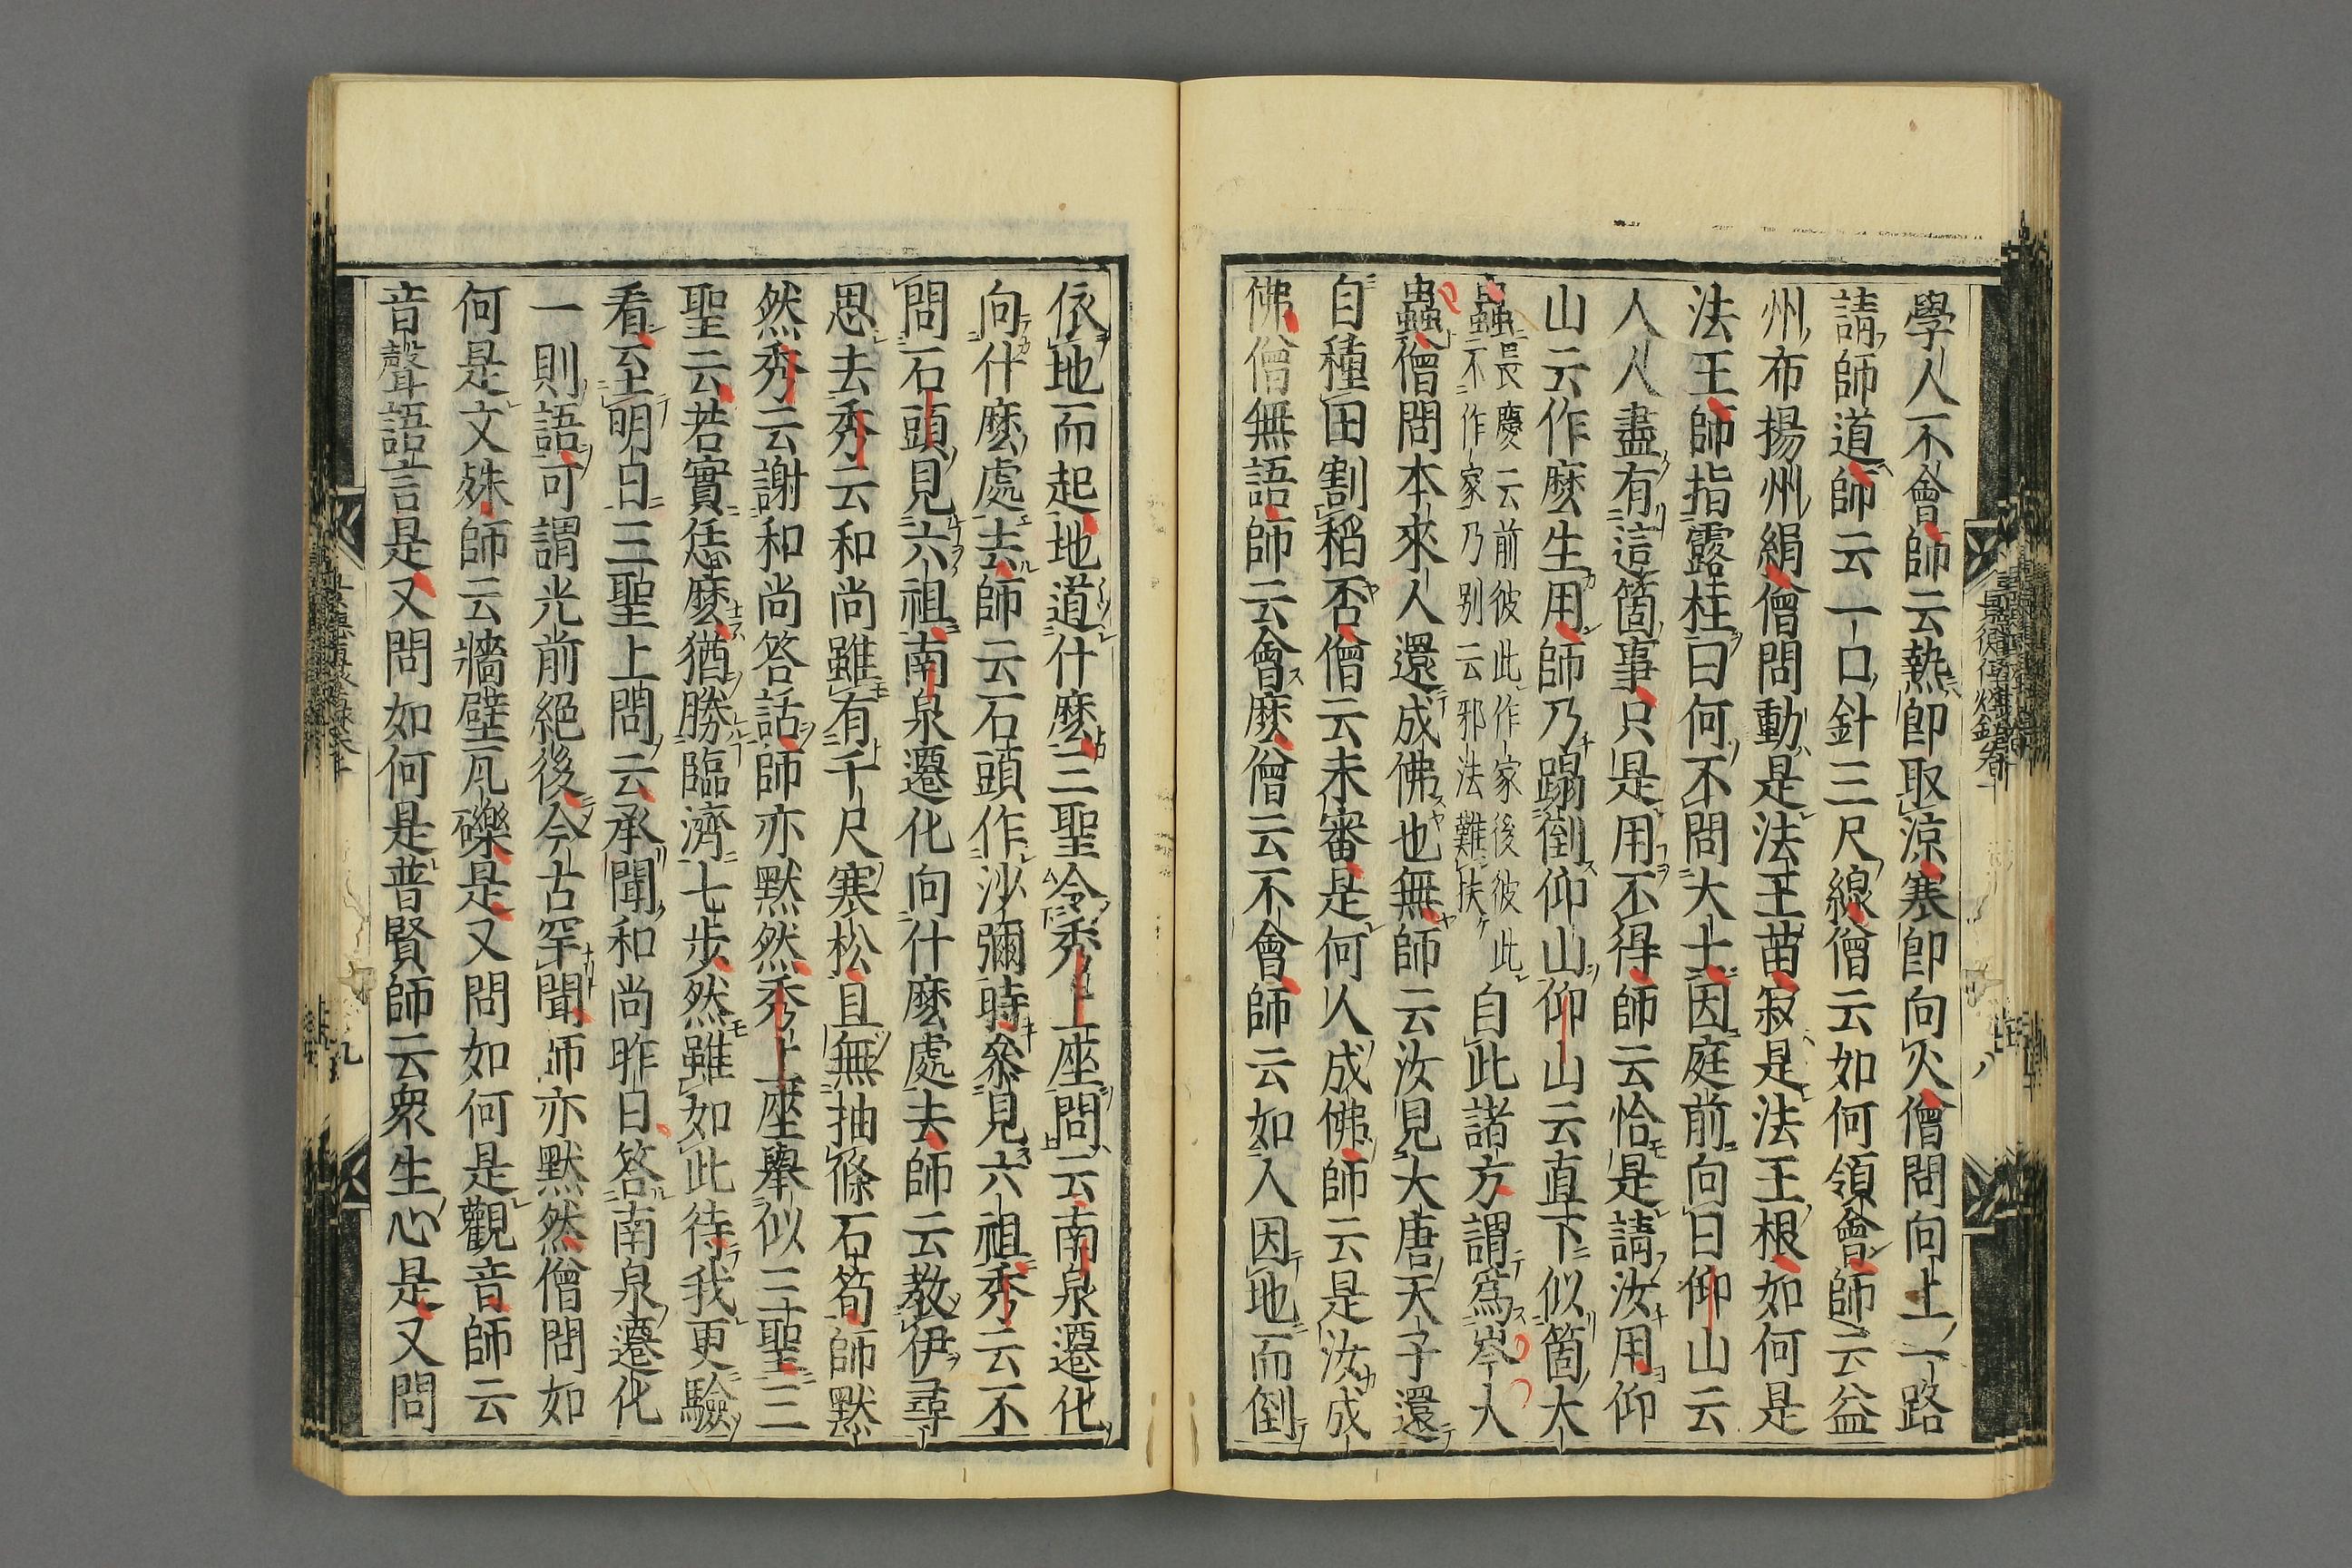 學人不會師云熱卽取涼寒卽向火僧問向上一路
請師道師云一口針三尺線僧云如何領會師云益
州布揚州絹僧問動是法王苗寂是法王根如何是
法王師指露柱曰何不問大士因庭前向日仰山云
人人盡有這箇事只是用不得師云恰是請汝用仰
山云作麼生用師乃蹋倒仰山仰山云直下似箇大
蟲長慶云前彼此作家後彼此不作家乃別云邪法難扶自此諸方謂爲岑大
蟲僧問本來人還成佛也無師云汝見大唐天子還
自種田割稻否僧云未審是何人成佛師云是汝成
佛僧無語師云會麼僧云不會師云如人因地而倒
依地而起地道什麼三聖令秀上座問云南泉遷化
向什麼處去師云石頭作沙彌時參見六祖秀云不
問石頭見六祖南泉遷化向什麼處去師云敎伊尋
思去秀云和尚雖有千尺寒松且無抽條石筍師默
然秀云謝和尚答話師亦默然秀上座擧似三聖三
聖云若實恁麼猶勝臨濟七步然雖如此待我更驗
看至明日三聖上問云承聞和尚昨日答南泉遷化
一則語可謂光前絕後今古罕聞師亦默然僧問如
何是文殊師云牆壁瓦礫是又問如何是觀音師云
音聲語言是又問如何是普賢師云衆生心是又問